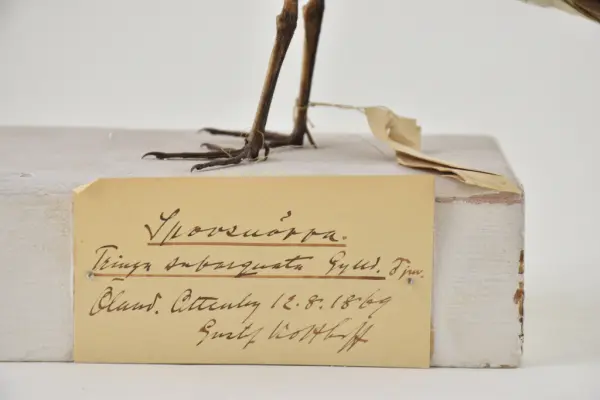 Spovsnäppa.
Tringa subarquata Gyld. Tjur.
Öland. Ottenby 12.8.1869
Gustf Kolthoff